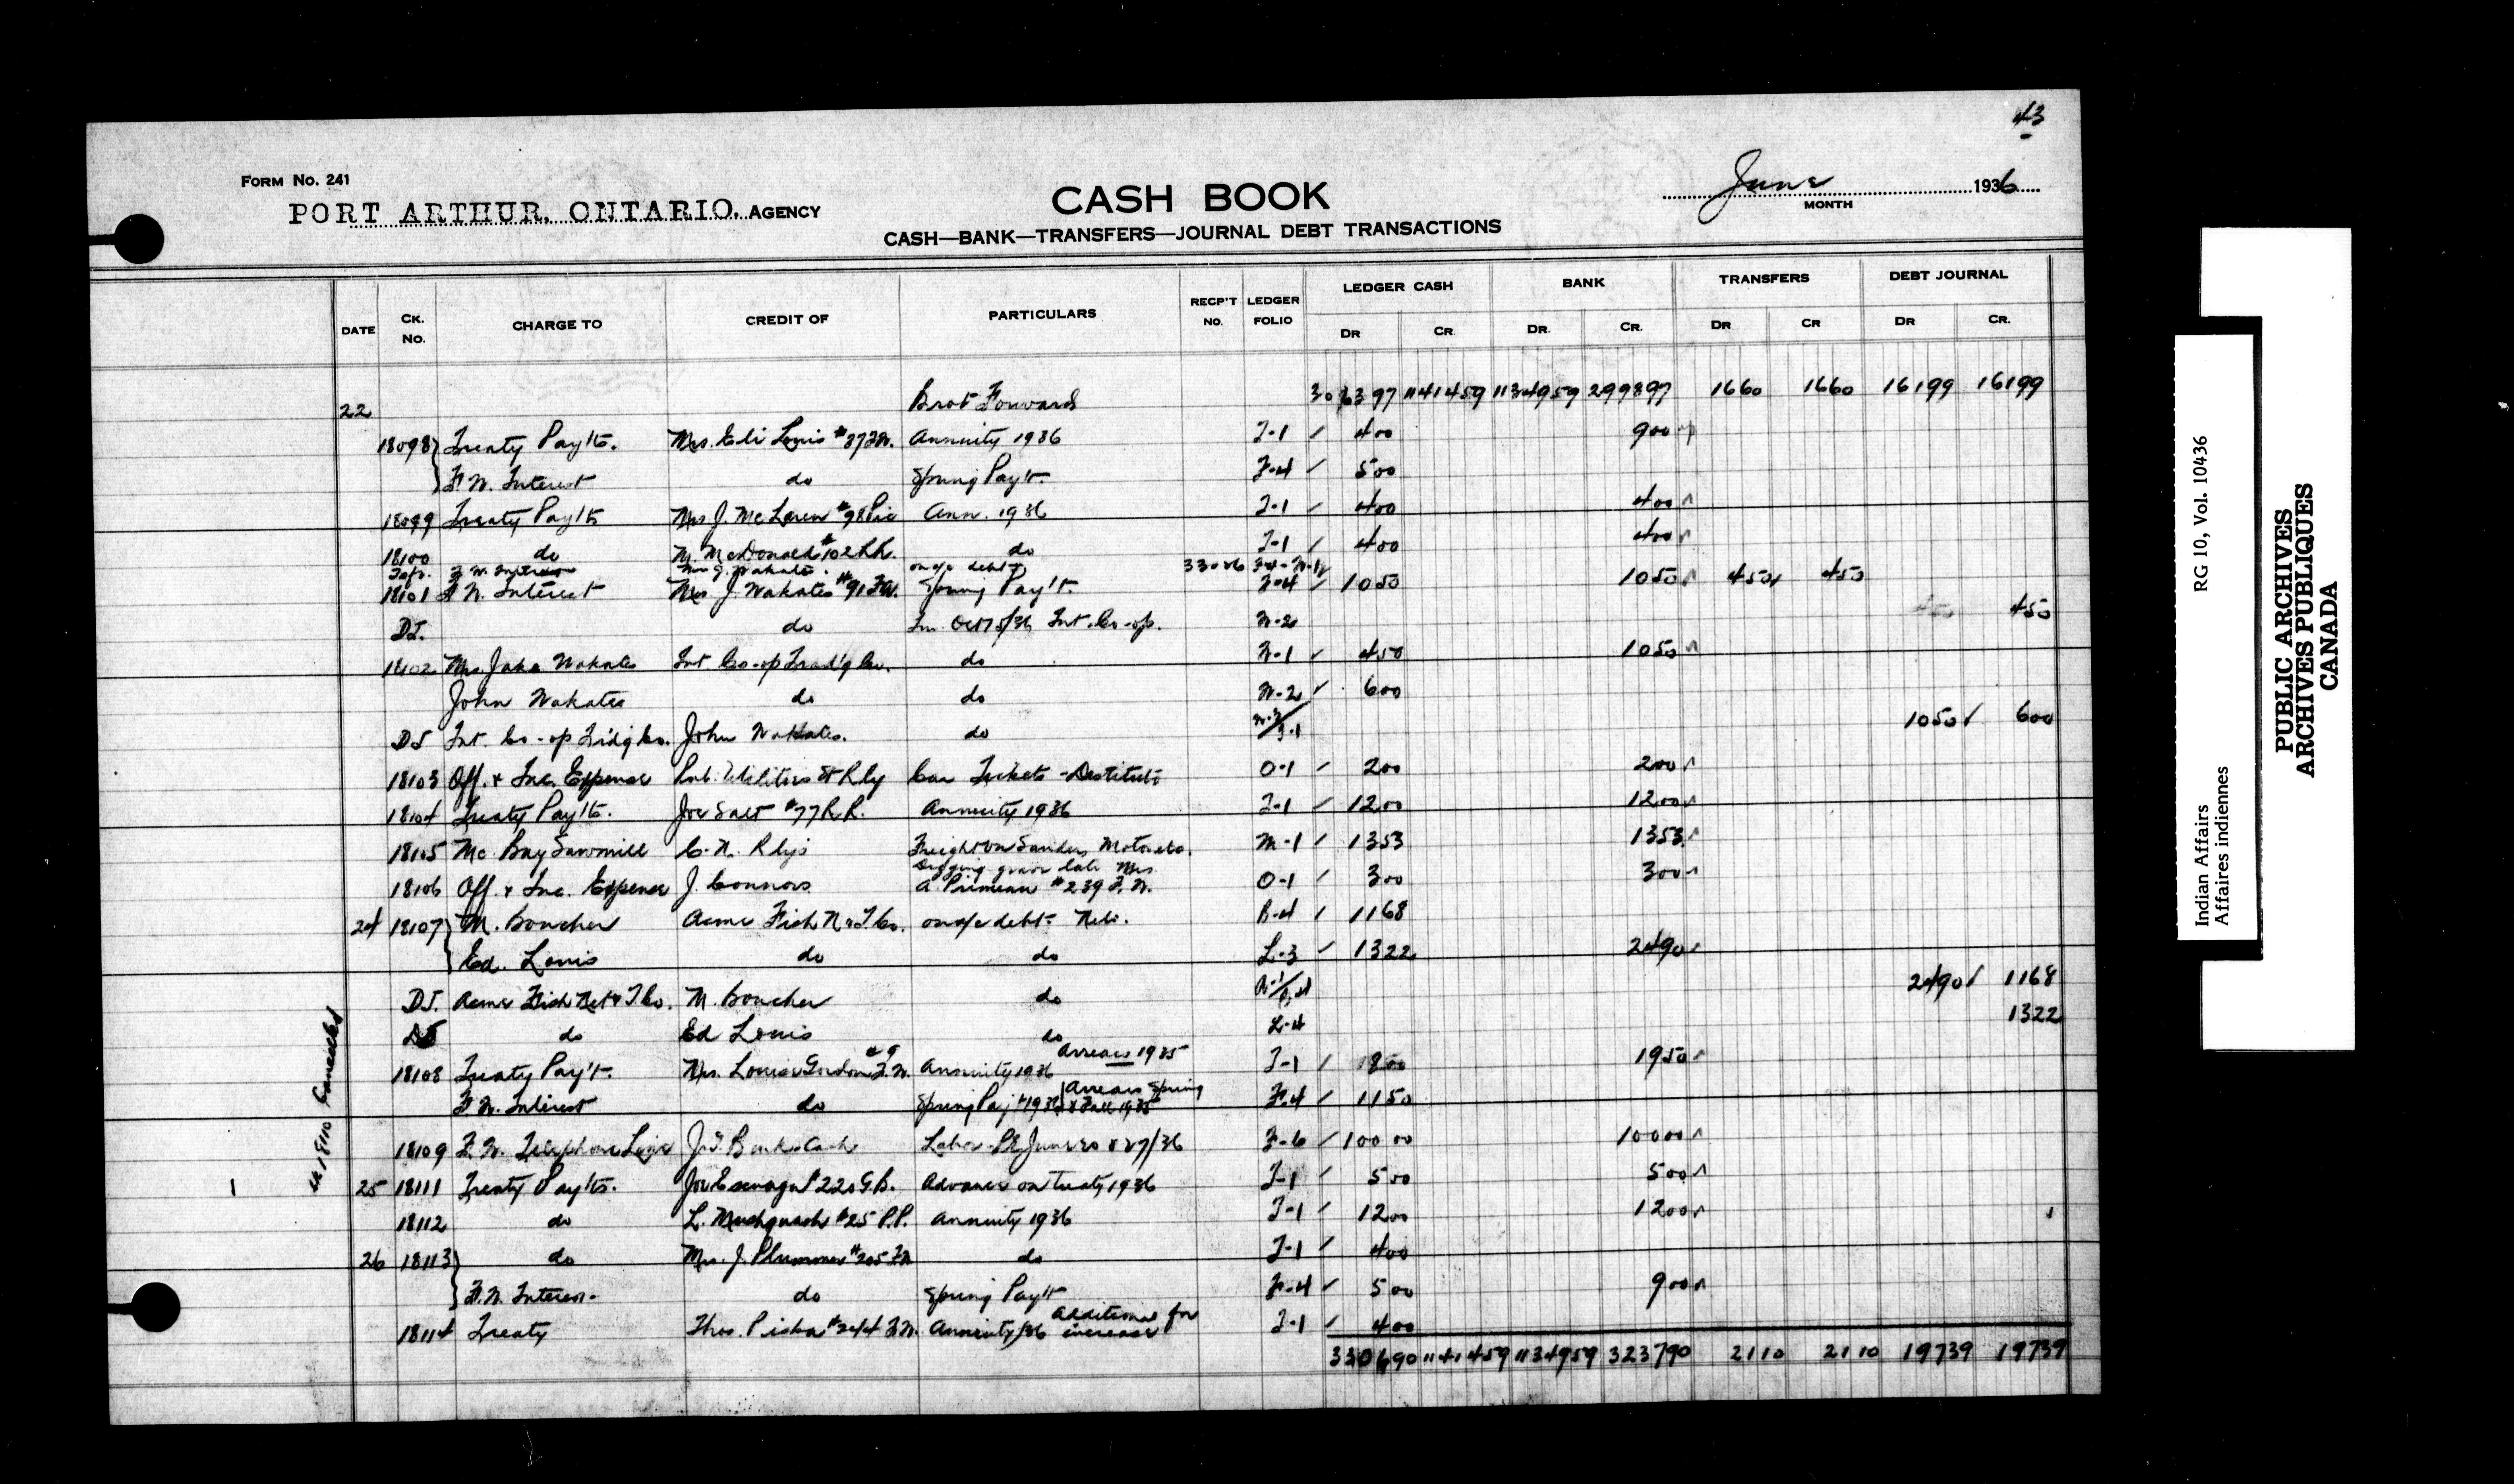 43
FORM No. 241
PORT ARTHUR, ONTARIO, AGENCY
CASH BOOK
June 1936
MONTH
CASH—BANK—TRANSFERS—JOURNAL DEBT TRANSACTIONS
DATE CK. No. CHARGE TO CREDIT OF PARTICULARS RECP'T No. LEDGER FOLIO LEDGER CASH BANK TRANSFERS DEBT JOURNAL
DR CR. DR. CR. DR CR DR CR.
22 Brot Forward 306397 1141459 1134959 299897 1660 1660 16199 16199
18098 Treaty Pay'ts. Mrs. Eli Louis #37 F.W. Annuity 1936 T-1 400 900
F.W. Interest do Spring Pay't. F-4 500
18099 Treaty Pay'ts Mrs J. McLaren #98 Pic Ann. 1936 T-1 400 400
18100 do M. McDonald #102 L.L. do T-1 400 400
Tsfr. F.W. Interest Mrs J. Wakates. on a/c debt 33026 F-4-W-1 450 450
18101 F.W. Interest Mrs J. Wakates #91 F.W. Spring Pay't. F-4 1050 1050
DJ. do Int. Co-op. W-2 450
18102 Mrs. Jake Wakates Int. Co-op Trad'g Co. do W-1 450 1050
John Wakates do do W-2 600
DJ Int. Co-op Trdg Co. John Wakates. do 1050 600
18103 Off. & Inc. Expense Pub. Utilities St Rly Car Tickets - Destitute O-1 200 200
18104 Treaty Pay'ts. Joe Salt #77 R.R. Annuity 1936 T-1 1200 1200
18105 Mc Bay Sawmill C.N. Rlys Freight on Sander, Motor etc. M-1 1353 1353
18106 Off. & Inc. Expense J. Connors Digging grave late Mrs. A Primeau #239 F.W. O-1 300 300
24 18107 M. Boucher Acme Fish N & T Co. on a/c debt - Nets. B-4 1168
Ed. Louis do do L-3 1322 2490
DJ. Acme Fish Net & T Co. M. Boucher do 2490 1168
DJ do Ed Louis do L-4 1322
18108 Treaty Pay't. Mrs. Louise Gordon #9 F.W. Annuity 1936 Arrears 1935 T-1 800 1950
F.W. Interest do Spring Pay't 1936 Arrears Spring & Fall 1935 F-4 1150
18109 F.W. Telephone Line Labor - P.L. June 20 & 27/36 F-6 10000 10000
ck 18110 Cancelled
1 25 18111 Treaty Pay'ts. Joe Esquega #220 G.B. Advance on Treaty 1936 T-1 500 500
18112 do L. Mushquash #25 P.P. Annuity 1936 T-1 1200 1200
26 18113 do Mrs. J. Plummer #205 F.W. do T-1 400
F.W. Interest do Spring Pay't F-4 500 900
18114 Treaty Thos. Pisha #244 F.W. Annuity/36 Additional for increase T-1 400
330690 1141459 1134959 323790 2110 2110 19739 19739
Indian Affairs RG 10, Vol. 10436
Affaires indiennes
PUBLIC ARCHIVES
ARCHIVES PUBLIQUES
CANADA